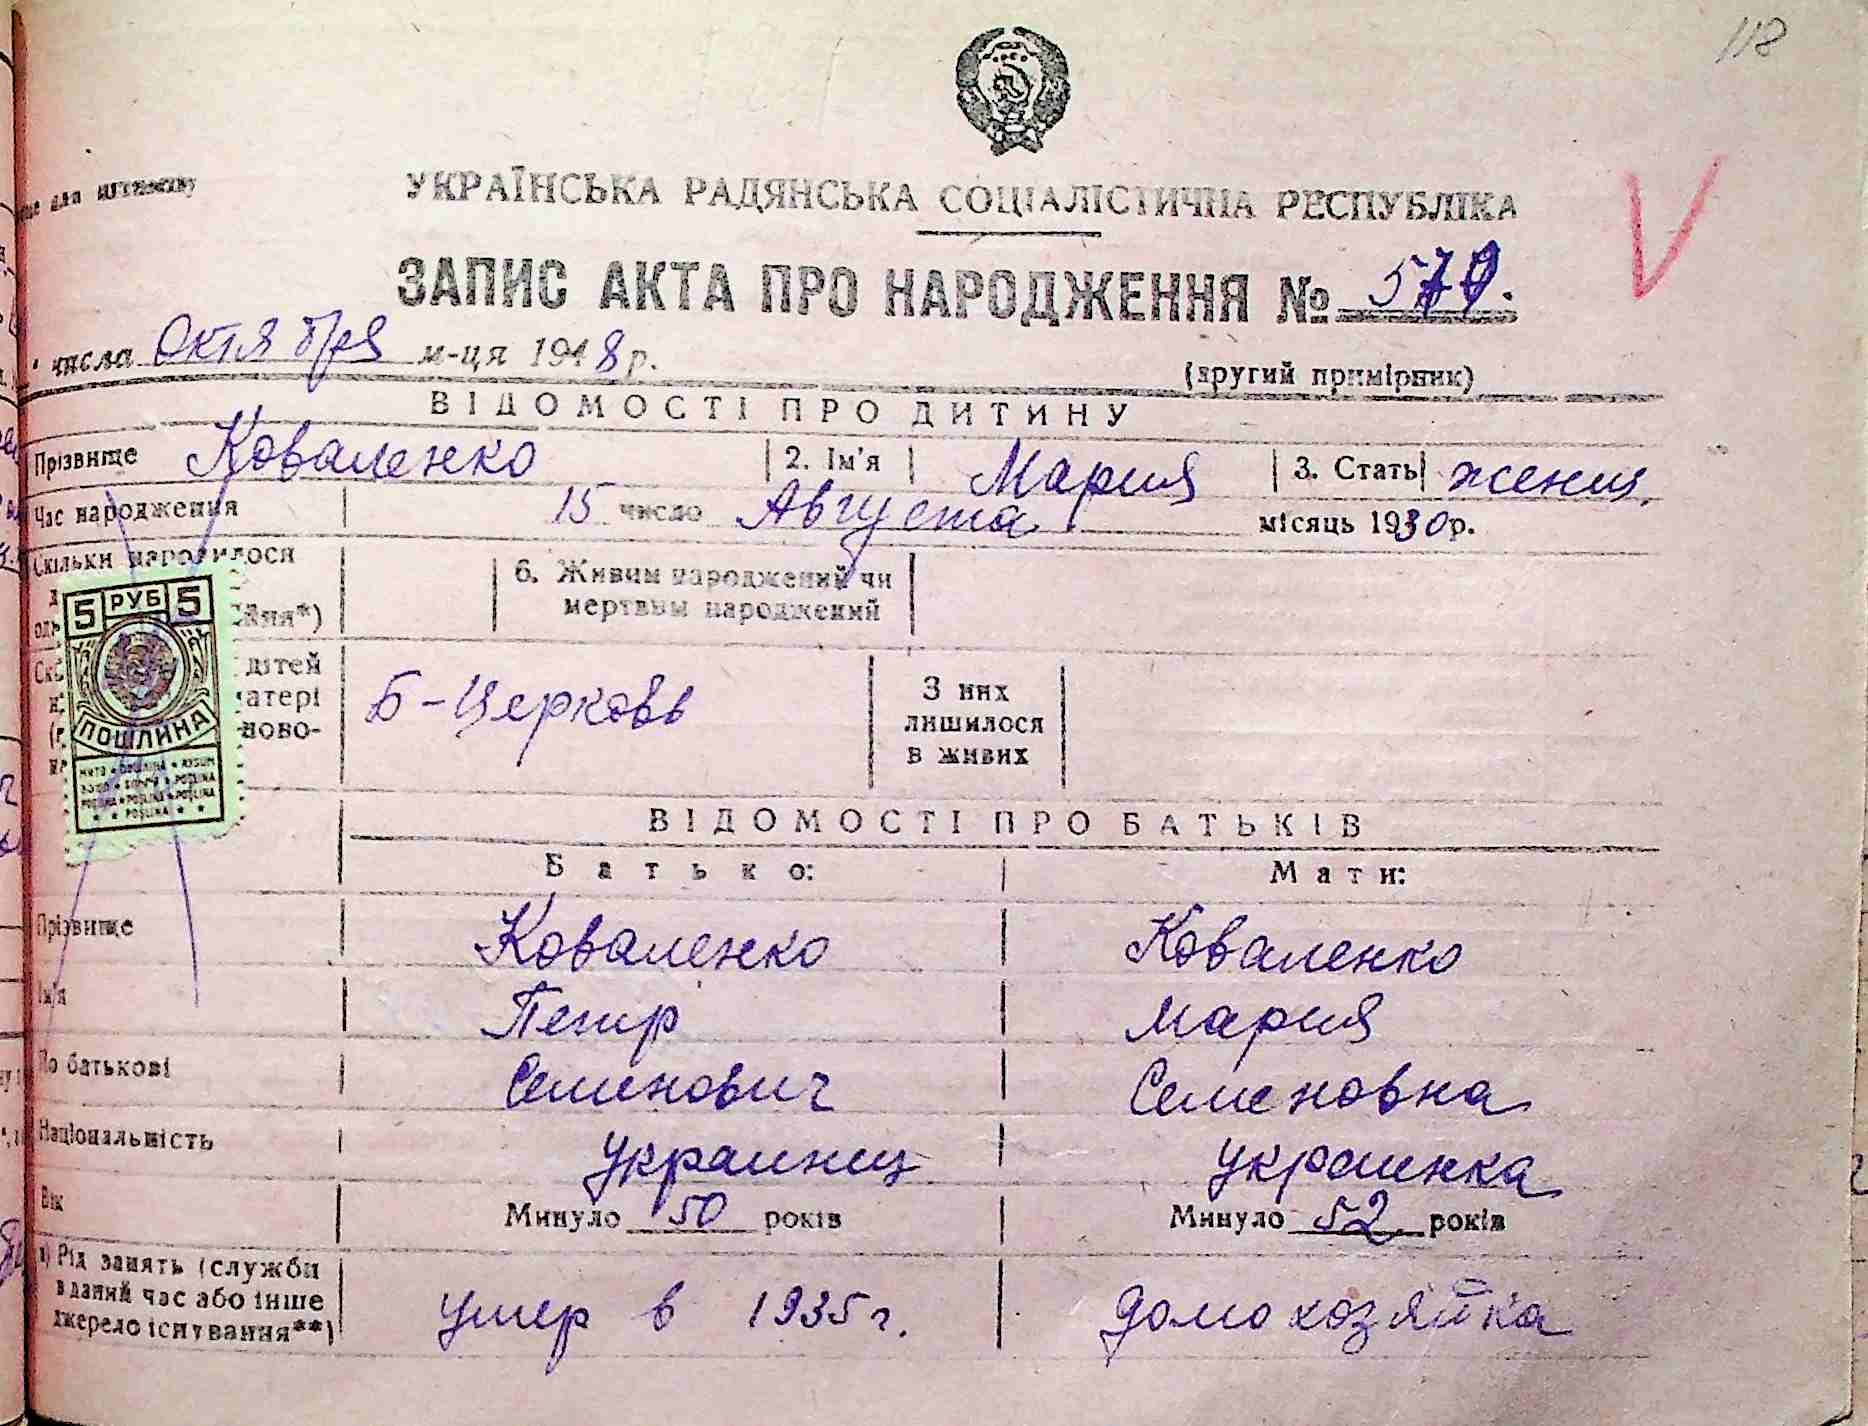 118
УКРАЇНСЬКА РАДЯНСЬКА СОЦІАЛІСТИЧНА РЕСПУБЛІКА
ЗАПИС АКТА ПРО НАРОДЖЕННЯ №
числа Октября м-ця 1948 р.
(другий примірник)
ВІДОМОСТІ ПРО ДИТИНУ
Прізвище Коваленко 2. Ім'я Мария 3. Стать женщ.
Час народження 15 число Августа місяць 1930 р.
Скільки народилося
6. Живим народжений чи
мертвим народжений
дітей
Б-Церковь
З них
лишилося
в живих
5 РУБ 5
ПОШЛИНА
ВІДОМОСТІ ПРО БАТЬКІВ
Батько: Мати:
Прізвище Коваленко Коваленко
Ім'я Петр Мария
По батькові Семенович Семеновна
Національність украинец украинка
Вік Минуло 50 років Минуло 52 років
Рід занять (служби
в даний час або інше
джерело існування**)
умер в 1935 г. домохозяйка